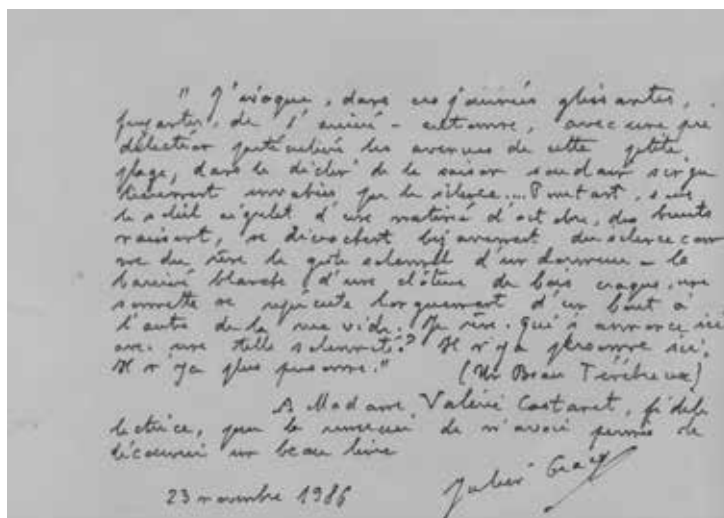 "J'évoque, dans ces journées glissantes,
fuyantes, de l'arrière-automne, avec une pré
dilection particulière les avenues de cette petite
plage, dans le déclin de la saison soudain singu
lièrement envahies par le silence.... Pourtant, sous
le soleil aigrelet d'une matinée d'octobre, des bruits
naissent, se décrochent bizarrement du silence com
me du rêve le geste solennel d'un dormeur - la
barrière blanche d'une clôture de bois craque, une
sonnette se répercute longuement d'un bout à
l'autre de la rue vide. Je rêve. Qui s'annonce ici
avec une telle solennité? Il n'y a personne ici.
Il n'y a plus personne." (Un Beau Ténébreux)
A Madame Valérie Castaret, fidèle
lectrice, pour la remercier de m'avoir permis de
découvrir un beau livre
Julien Gracq
23 novembre 1986